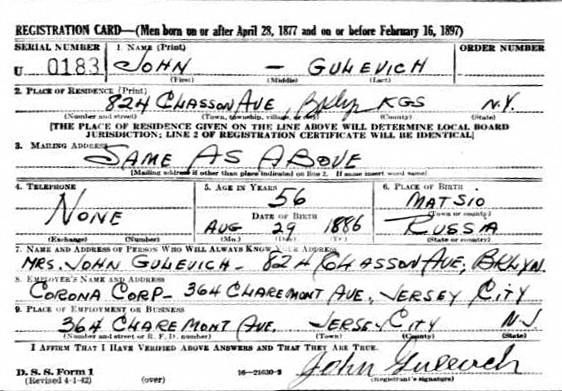 REGISTRATION CARD—(Men born on or after April 28, 1877 and on or before February 16, 1897)
SERIAL NUMBER 1. NAME (Print) ORDER NUMBER
U 0183 JOHN — GULEVICH
(First) (Middle) (Last)
2. PLACE OF RESIDENCE (Print)
824 CLASSON AVE, BKLYN KGS N.Y.
(Number and street) (Town, township, village, or city) (County) (State)
[THE PLACE OF RESIDENCE GIVEN ON THE LINE ABOVE WILL DETERMINE LOCAL BOARD
JURISDICTION; LINE 2 OF REGISTRATION CERTIFICATE WILL BE IDENTICAL]
3. MAILING ADDRESS
SAME AS ABOVE
[Mailing address if other than place indicated on line 2. If same insert word same]
4. TELEPHONE 5. AGE IN YEARS 6. PLACE OF BIRTH
56 MATSIO
NONE DATE OF BIRTH (Town or county)
AUG 29 1886 RUSSIA
(Exchange) (Number) (Mo.) (Day) (Yr.) (State or country)
7. NAME AND ADDRESS OF PERSON WHO WILL ALWAYS KNOW YOUR ADDRESS
MRS. JOHN GULEVICH - 824 CLASSON AVE, BKLYN.
8. EMPLOYER'S NAME AND ADDRESS
CORONA CORP - 364 CLAREMONT AVE., JERSEY CITY
9. PLACE OF EMPLOYMENT OR BUSINESS
364 CLAREMONT AVE, JERSEY CITY NJ
(Number and street or R. F. D. number) (Town) (County) (State)
I AFFIRM THAT I HAVE VERIFIED ABOVE ANSWERS AND THAT THEY ARE TRUE.
John Gulevich
D. S. S. Form 1
(Revised 4-1-42) (over) 16—21630-2 (Registrant's signature)